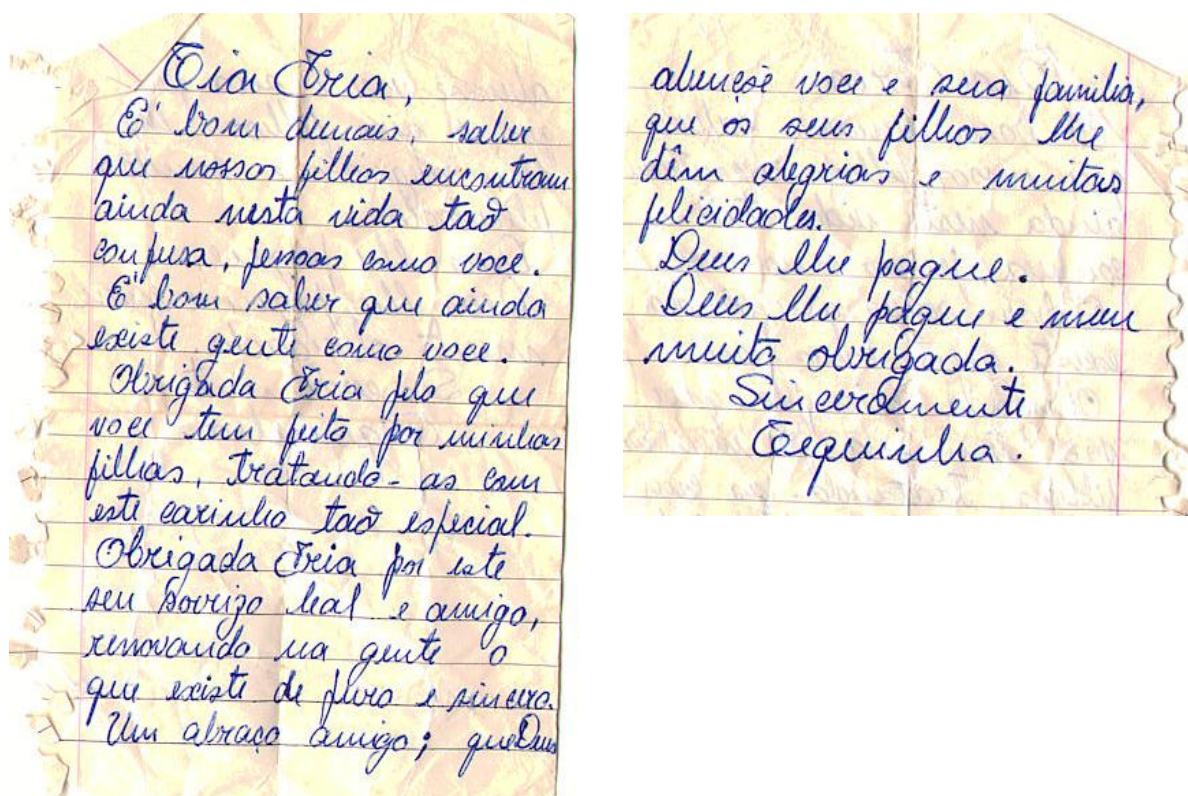 Tia Íria,
É bom demais, saber
que nossos filhos encontram
ainda nesta vida taõ
confusa, pessoas como voce.
É bom saber que ainda
existe gente como voce.
Obrigada Íria pelo que
voce tem feito por minhas
filhas, tratando-as com
este carinho taõ especial.
Obrigada Íria por este
seu sorrizo leal e amigo,
renovando na gente o
que existe de puro e sincero.
Um abraço amigo; que Deus
abençoe voce e sua familia,
que os seus filhos lhe
dêm alegrias e muitas
felicidades.
Deus lhe pague.
Deus lhe pague e meu
muito obrigada.
Sinceramente
Tequinha.